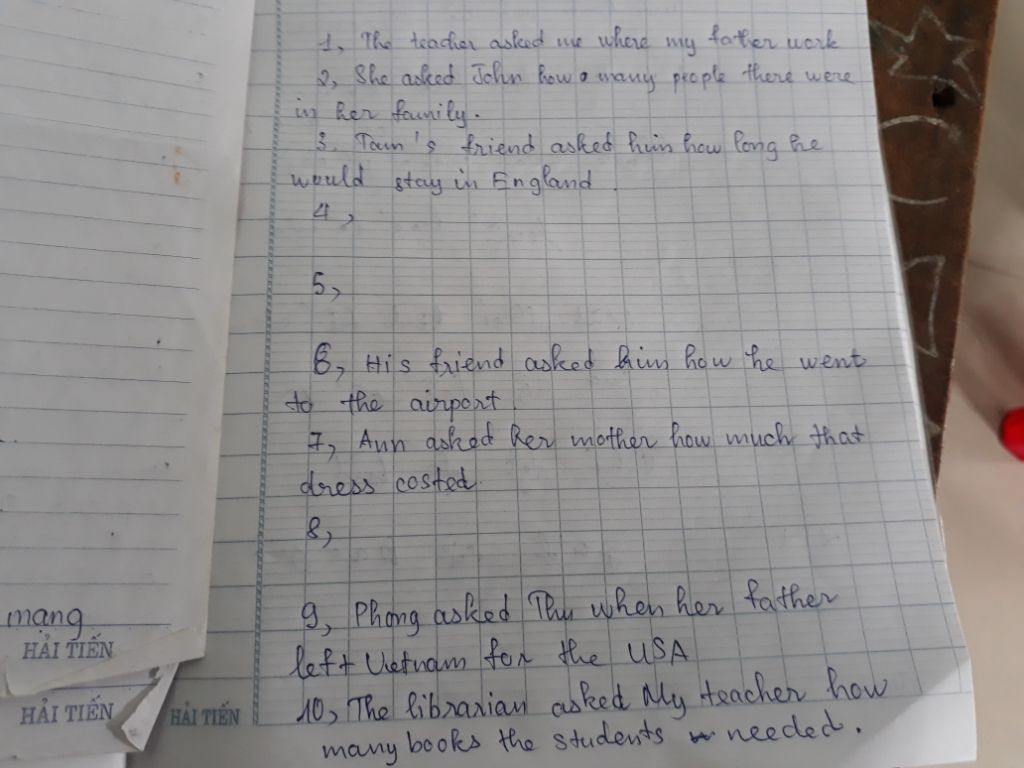 1, The teacher asked me where my father work
2, She asked John how many people there were
in her family.
3. Tam's friend asked him how long he
would stay in England
4,
5,
6, His friend asked him how he went
to the airport
7, Ann asked her mother how much that
dress costed.
8,
9, Phong asked Thu when her father
left Vietnam for the USA
10, The librarian asked My teacher how
many books the students needed.
mạng
HẢI TIẾN
HẢI TIẾN
HẢI TIẾN